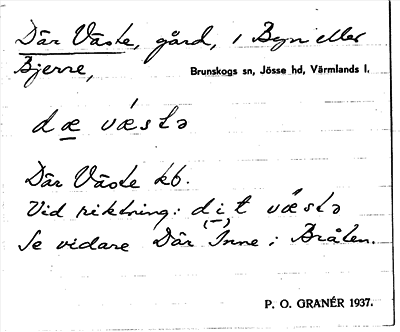 Där Väste, gård, i Byn eller
Bjerre,
Brunskogs sn, Jösse hd, Värmlands l.
dæ væstə
Där Väste kb.
Vid riktning: dit væstə
(–)
Se vidare Där Inne i Bråten.
P. O. GRANÉR 1937.